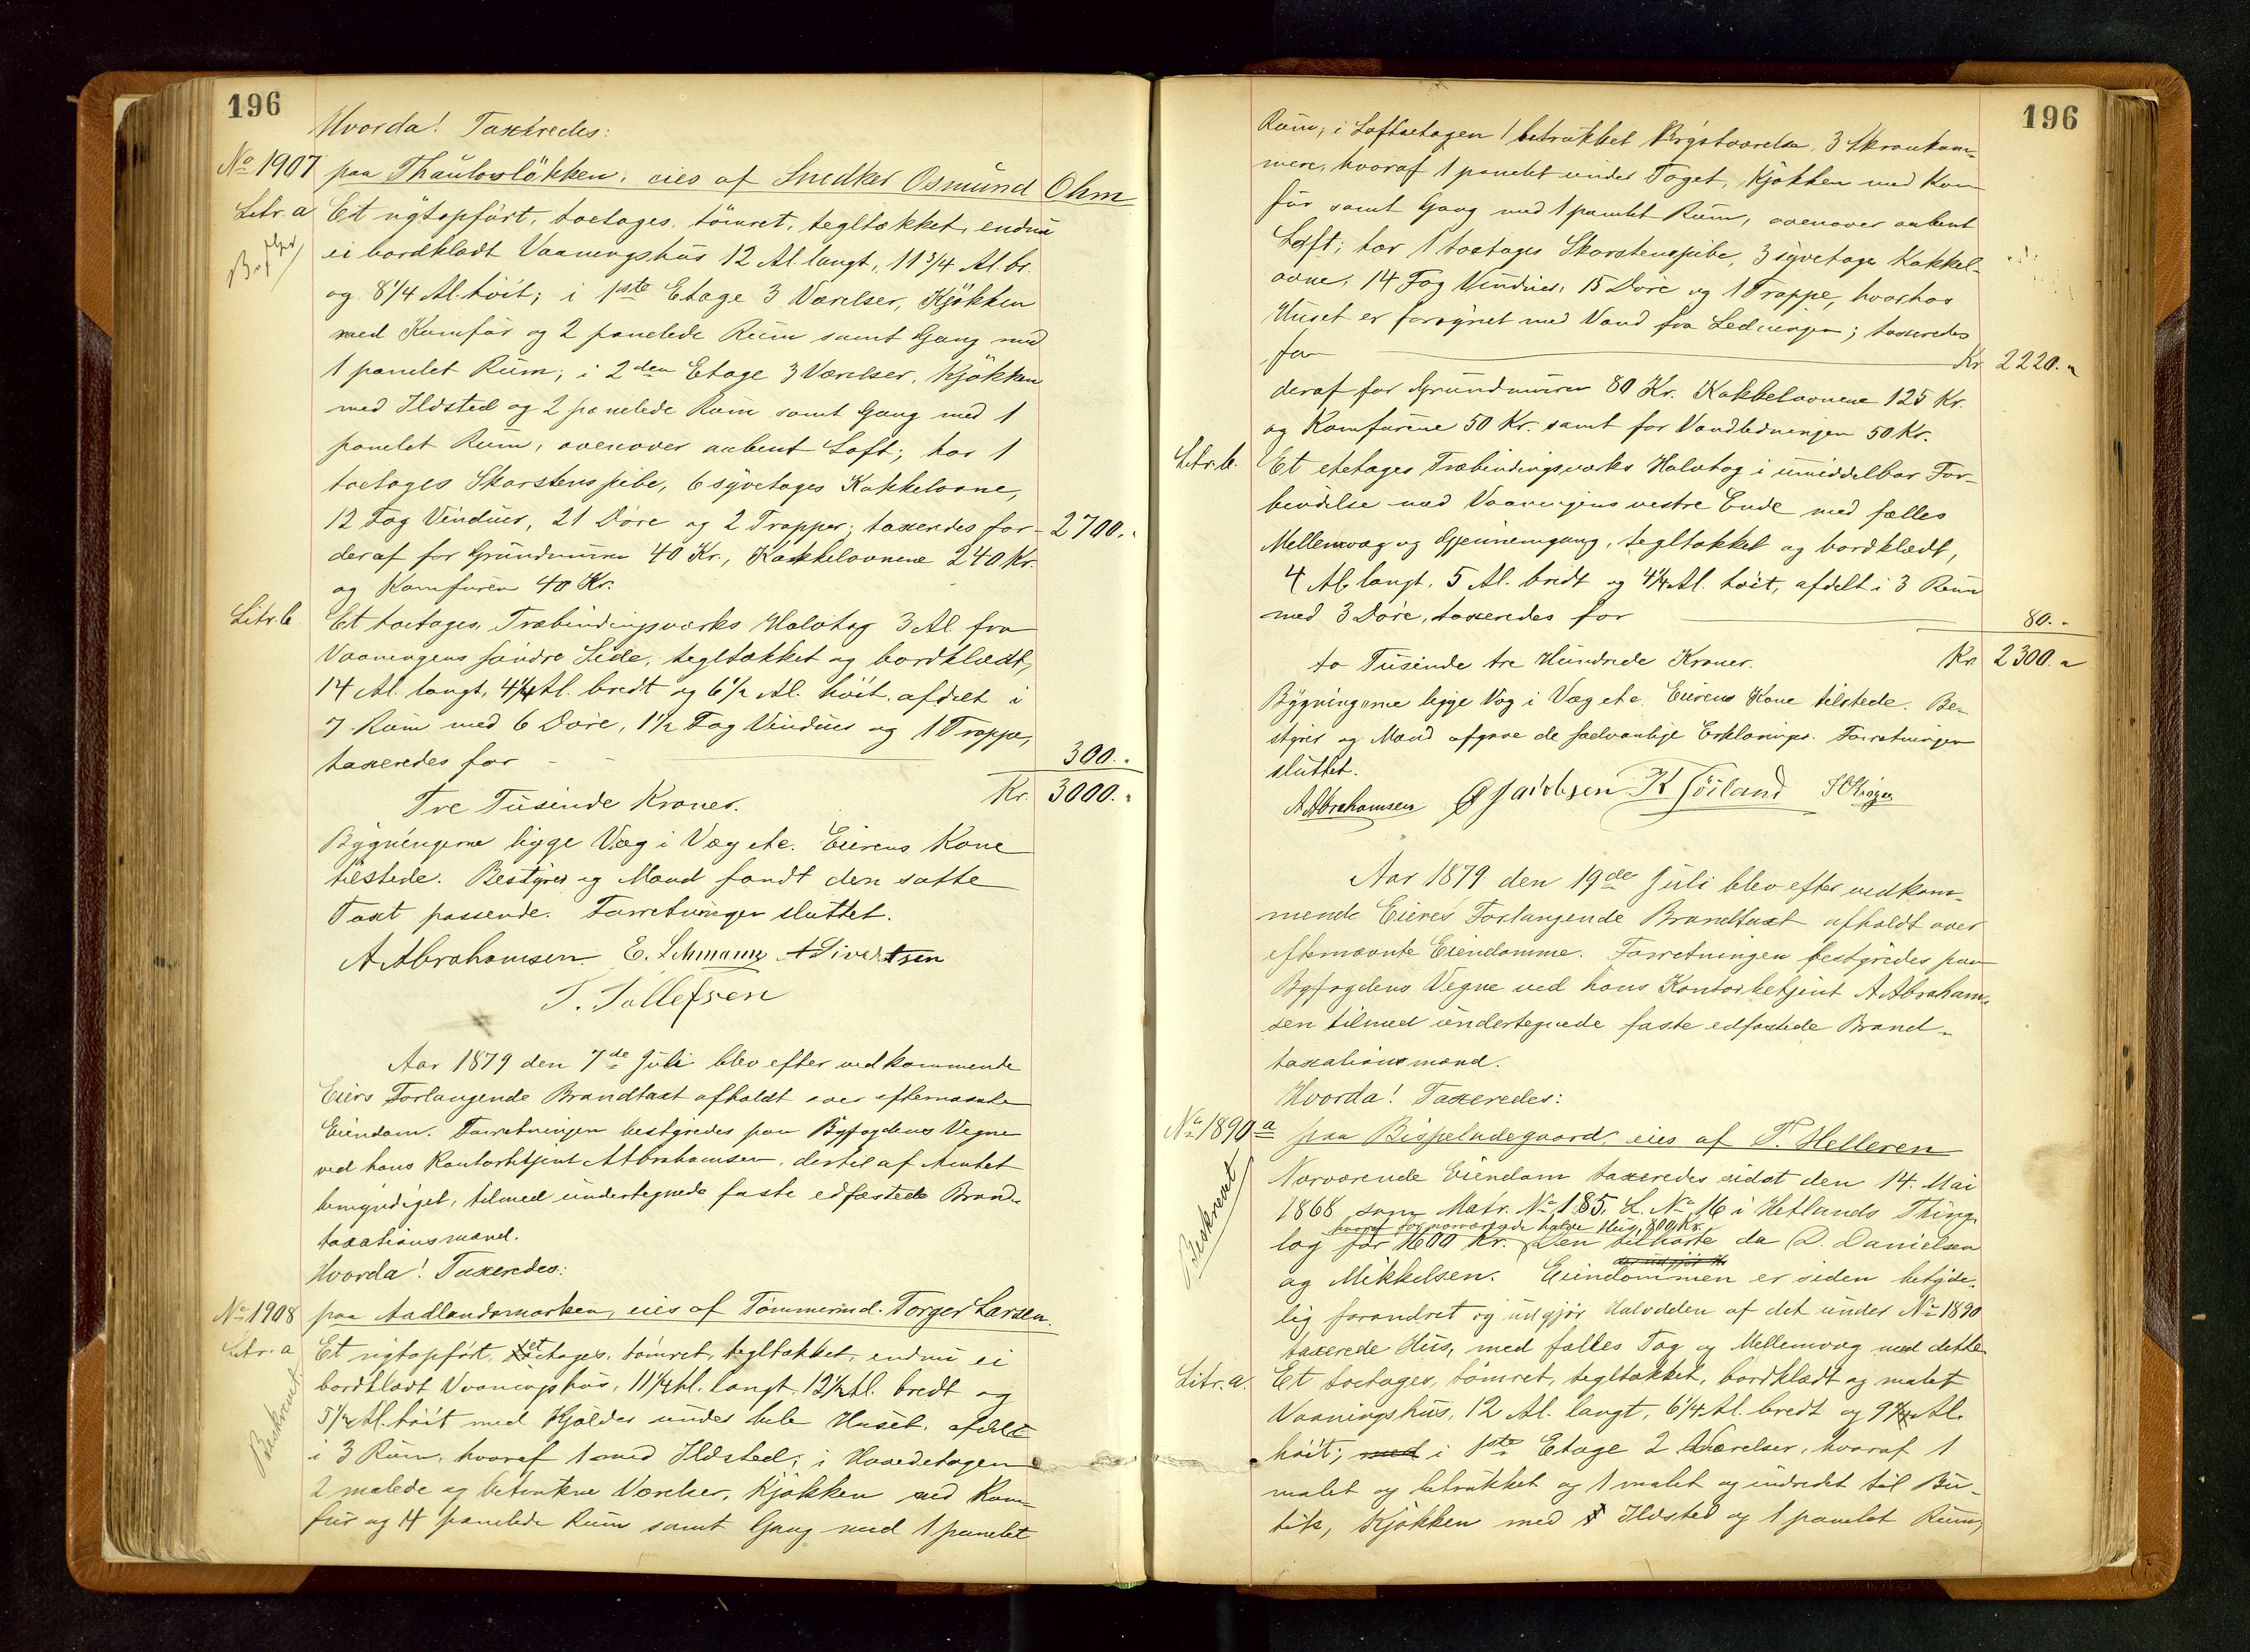 196
Hvorda! Taxeredes:
No 1907 paa Thaulowløkken, eies af Snedker Osmund Ohm
Litr. a Et nytopført, toetages, tømret, tegltækket, endnu
ei bordklædt Vaaningshus 12 Al. langt, 11 3/4 Al. br.
og 8 1/4 Al. høit; i 1ste Etage 3 Værelser, Kjøkken
med Komfur og 2 panelede Rum samt Gang med
1 panelet Rum; i 2den Etage 3 Værelser, Kjøkken
med Ildsted og 2 panelede Rum samt Gang med 1
panelet Rum, ovenover aabent Loft; har 1
toetages Skorstenspibe, 6 syvetages Kakkelovne,
12 Fag Vinduer, 21 Døre og 2 Trapper; taxeredes for - 2700.
deraf for Grundmuren 40 Kr., Kakkelovnene 240 Kr.
og Komfuren 40 Kr.
Litr. b. Et toetages Træbindingsværks Halvtag 3 Al. fra
Vaaningens søndre Side, tegltækket og bordklædt,
14 Al. langt, 4 1/4 Al. bredt og 6 1/2 Al. høit, afdelt i
7 Rum med 6 Døre, 1 1/2 Fag Vinduer og 1 Trappe,
taxeredes for 300.
Tre Tusinde Kroner. Kr. 3000.
Bygningerne ligge Væg i Væg etc. Eierens Kone
tilstede. Bestyrer og Mænd fandt den satte
Taxt passende. Forretningen sluttet.
A Abrahamsen E. Lehmann A Sivertsen
T. Tollefsen
Aar 1879 den 7de Juli blev efter vedkommende
Eiers Forlangende Brandtaxt afholdt over efternævnte
Eiendom. Forretningen bestyredes paa Byfogdens Vegne
ved hans Kontorbetjent A Abrahamsen, dertil af Amtet
bemyndiget, tilmed undertegnede faste edfæstede Brand-
taxationsmænd.
Hvorda! Taxeredes:
No 1908 paa Aadlandsmarken, eies af Tømmermd. Torger Larsen.
Litr. a Et nytopført, etetages, tømret, tegltækket, endnu ei
Beskrevet.
bordklædt Vaaningshus, 11 1/4 Al. langt, 12 1/2 Al. bredt og
5 1/2 Al. høit med Kjælder under hele Huset, afdelt
i 3 Rum, hvoraf 1 med Ildsted; i Hovedetagen
2 malede og betrukne Værelser, Kjøkken med Kom-
fur og 4 panelede Rum samt Gang med 1 panelet
196
Rum; i Loftsetagen 1 betrukket Kvistværelse, 3 Skraakam-
mere, hvoraf 1 panelet under Taget, Kjøkken med Kom
fur samt Gang med 1 panelet Rum, ovenover aabent
Loft; har 1 toetages Skorstenspibe, 3 syvetages Kakkel-
ovne, 14 Fag Vinduer, 15 Døre og 1 Trappe, hvorhos
Huset er forsynet med Vand fra Ledningen; taxeredes
for Kr 2220.
deraf for Grundmuren 80 Kr. Kakkelovnene 125 Kr.
og Komfurene 50 Kr. samt for Vandledningen 50 Kr.
Litr. b. Et etetages Træbindingsværks Halvtag i umiddelbar For-
bindelse med Vaaningens vestre Ende med fælles
Mellemvæg og Gjennemgang, tegltækket og bordklædt,
4 Al. langt, 5 Al. bredt og 4 1/4 Al. høit, afdelt i 3 Rum
med 3 Døre, taxeredes for 80.
to Tusinde tre Hundrede Kroner. Kr. 2300.
Bygningerne ligge Væg i Væg etc. Eierens Kone tilstede. Be-
styrer og Mænd afgave de sædvanlige Erklæringer. Forretningen
sluttet.
A Abrahamsen Jacobsen K Tøiland
Aar 1879 den 19de Juli blev efter vedkom-
mende Eieres Forlangende Brandtaxt afholdt over
efternævnte Eiendomme. Forretningen bestyredes paa
Byfogdens Vegne ved hans Kontorbetjent A Abraham-
sen tilmed undertegnede faste edfæstede Brand-
taxationsmænd.
Hvorda! Taxeredes:
No 1890 a paa Bispeladegaard, eies af T. Helleren
Beskrevet
Nærværende Eiendom taxeredes sidst den 14. Mai
1868 som Matr. No 185, L. No 16 i Hetlands Thing-
hvoraf for nærværende halve Huus 800 Kr.
lag for 1600 Kr. Den tilhørte da D. Danielsen
og Mikkelsen. Eiendommen er siden betyde-
lig forandret og udgjør Halvdelen af det under No 1890
taxerede Hus, med fælles Tag og Mellemvæg med dette
Litr. a. Et toetages, tømret, tegltækket, bordklædt og malet
Vaaningshus, 12 Al. langt, 6 1/4 Al. bredt og 9 Al.
høit; med i 1ste Etage 2 Værelser, hvoraf 1
malet og betrukket og 1 malet og indredet til Bu-
tik, Kjøkken med Ildsted og 1 panelet Rum,